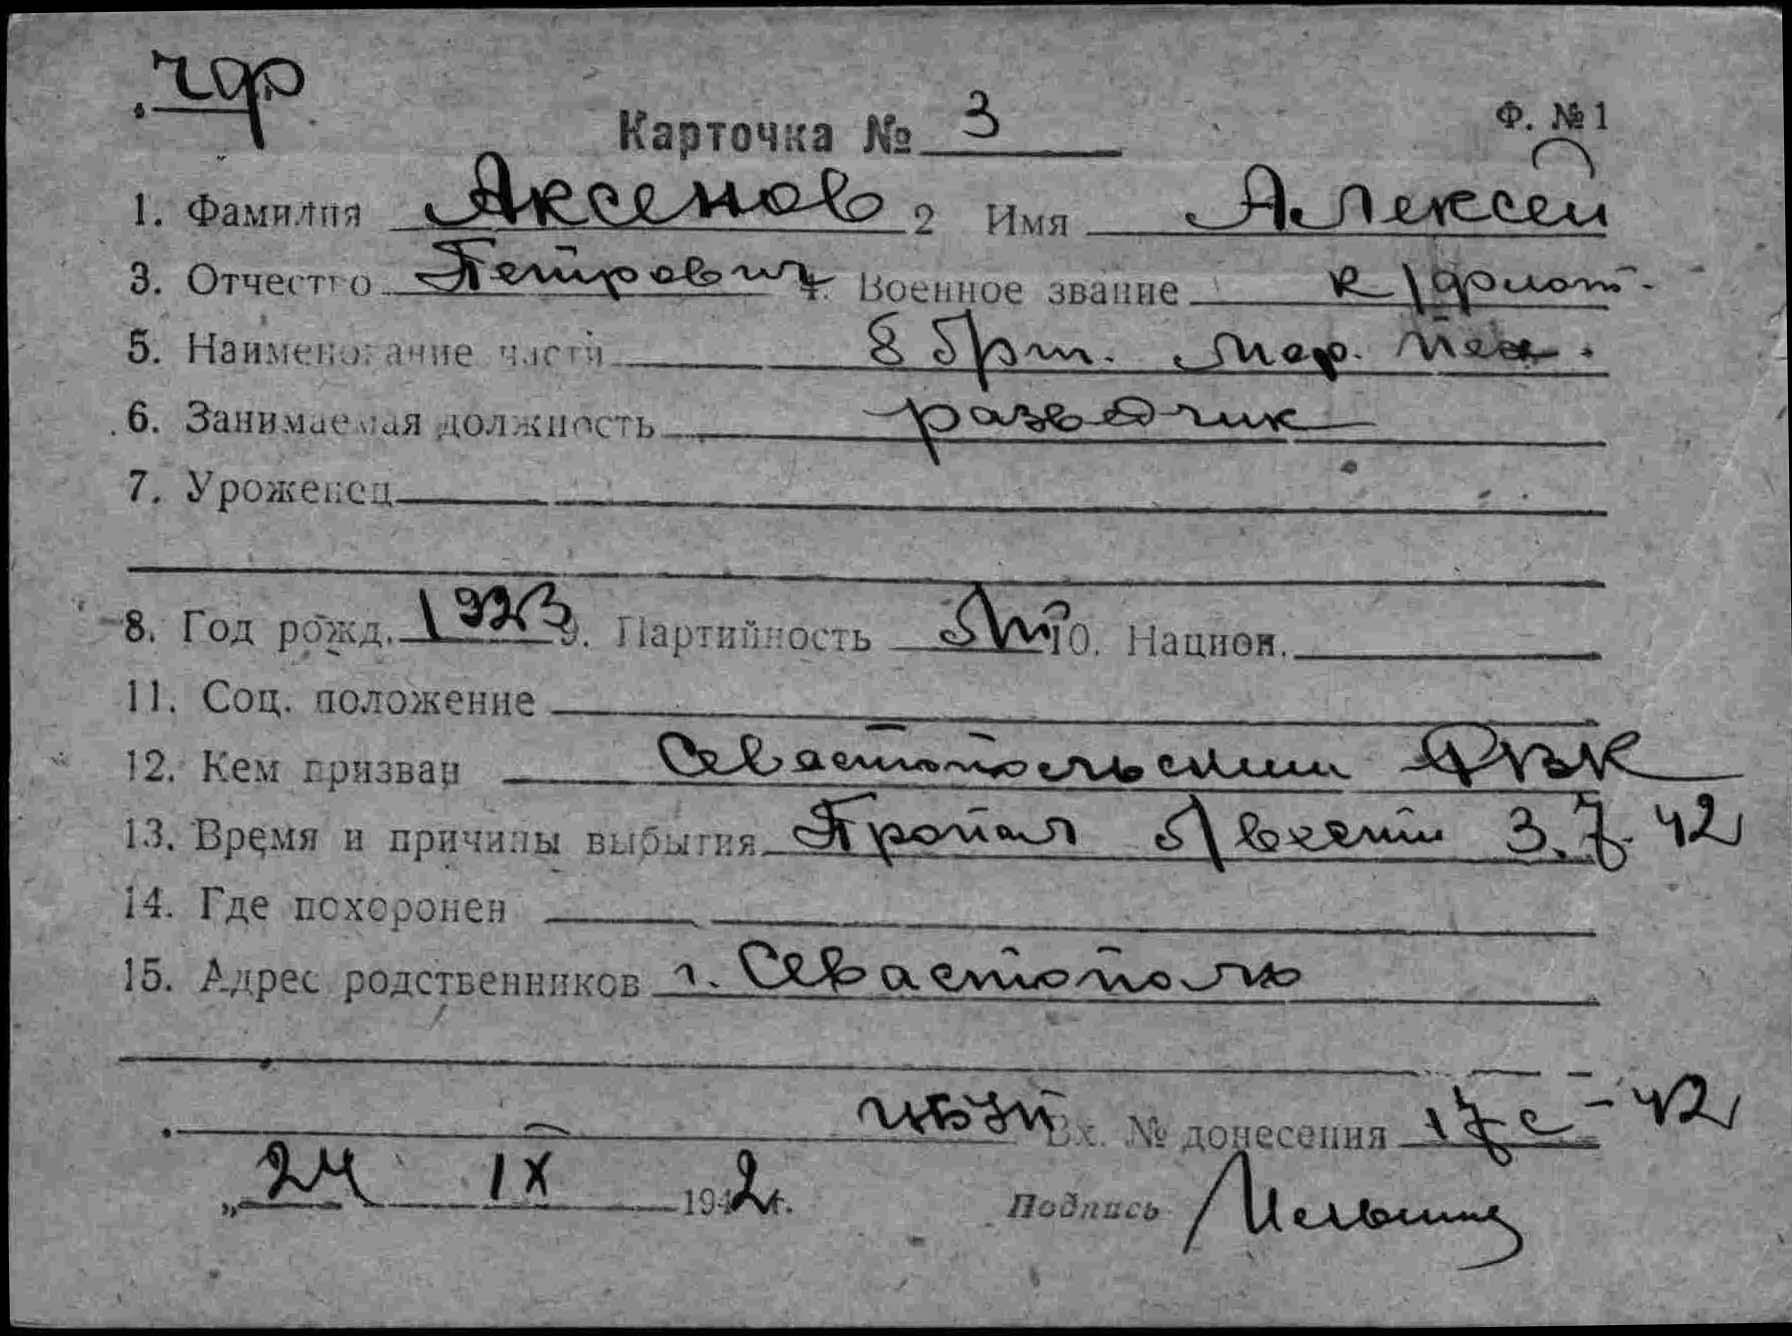 чф
Карточка № 3
Ф. № 1
1. Фамилия Аксенов 2 Имя Алексей
3. Отчество Петрович 4. Военное звание к/флот
5. Наименование части 8 бр. мор. пех.
6. Занимаемая должность разведчик
7. Уроженец
8. Год рожд. 1923 9. Партийность б/п 10. Национ.
11. Соц. положение
12. Кем призван Севастопольским РВК
13. Время и причины выбытия Пропал б/вести 3.7.42
14. Где похоронен
15. Адрес родственников г. Севастополь
Вх. № донесения 17с-42
„24 IX 1942г.
Подпись